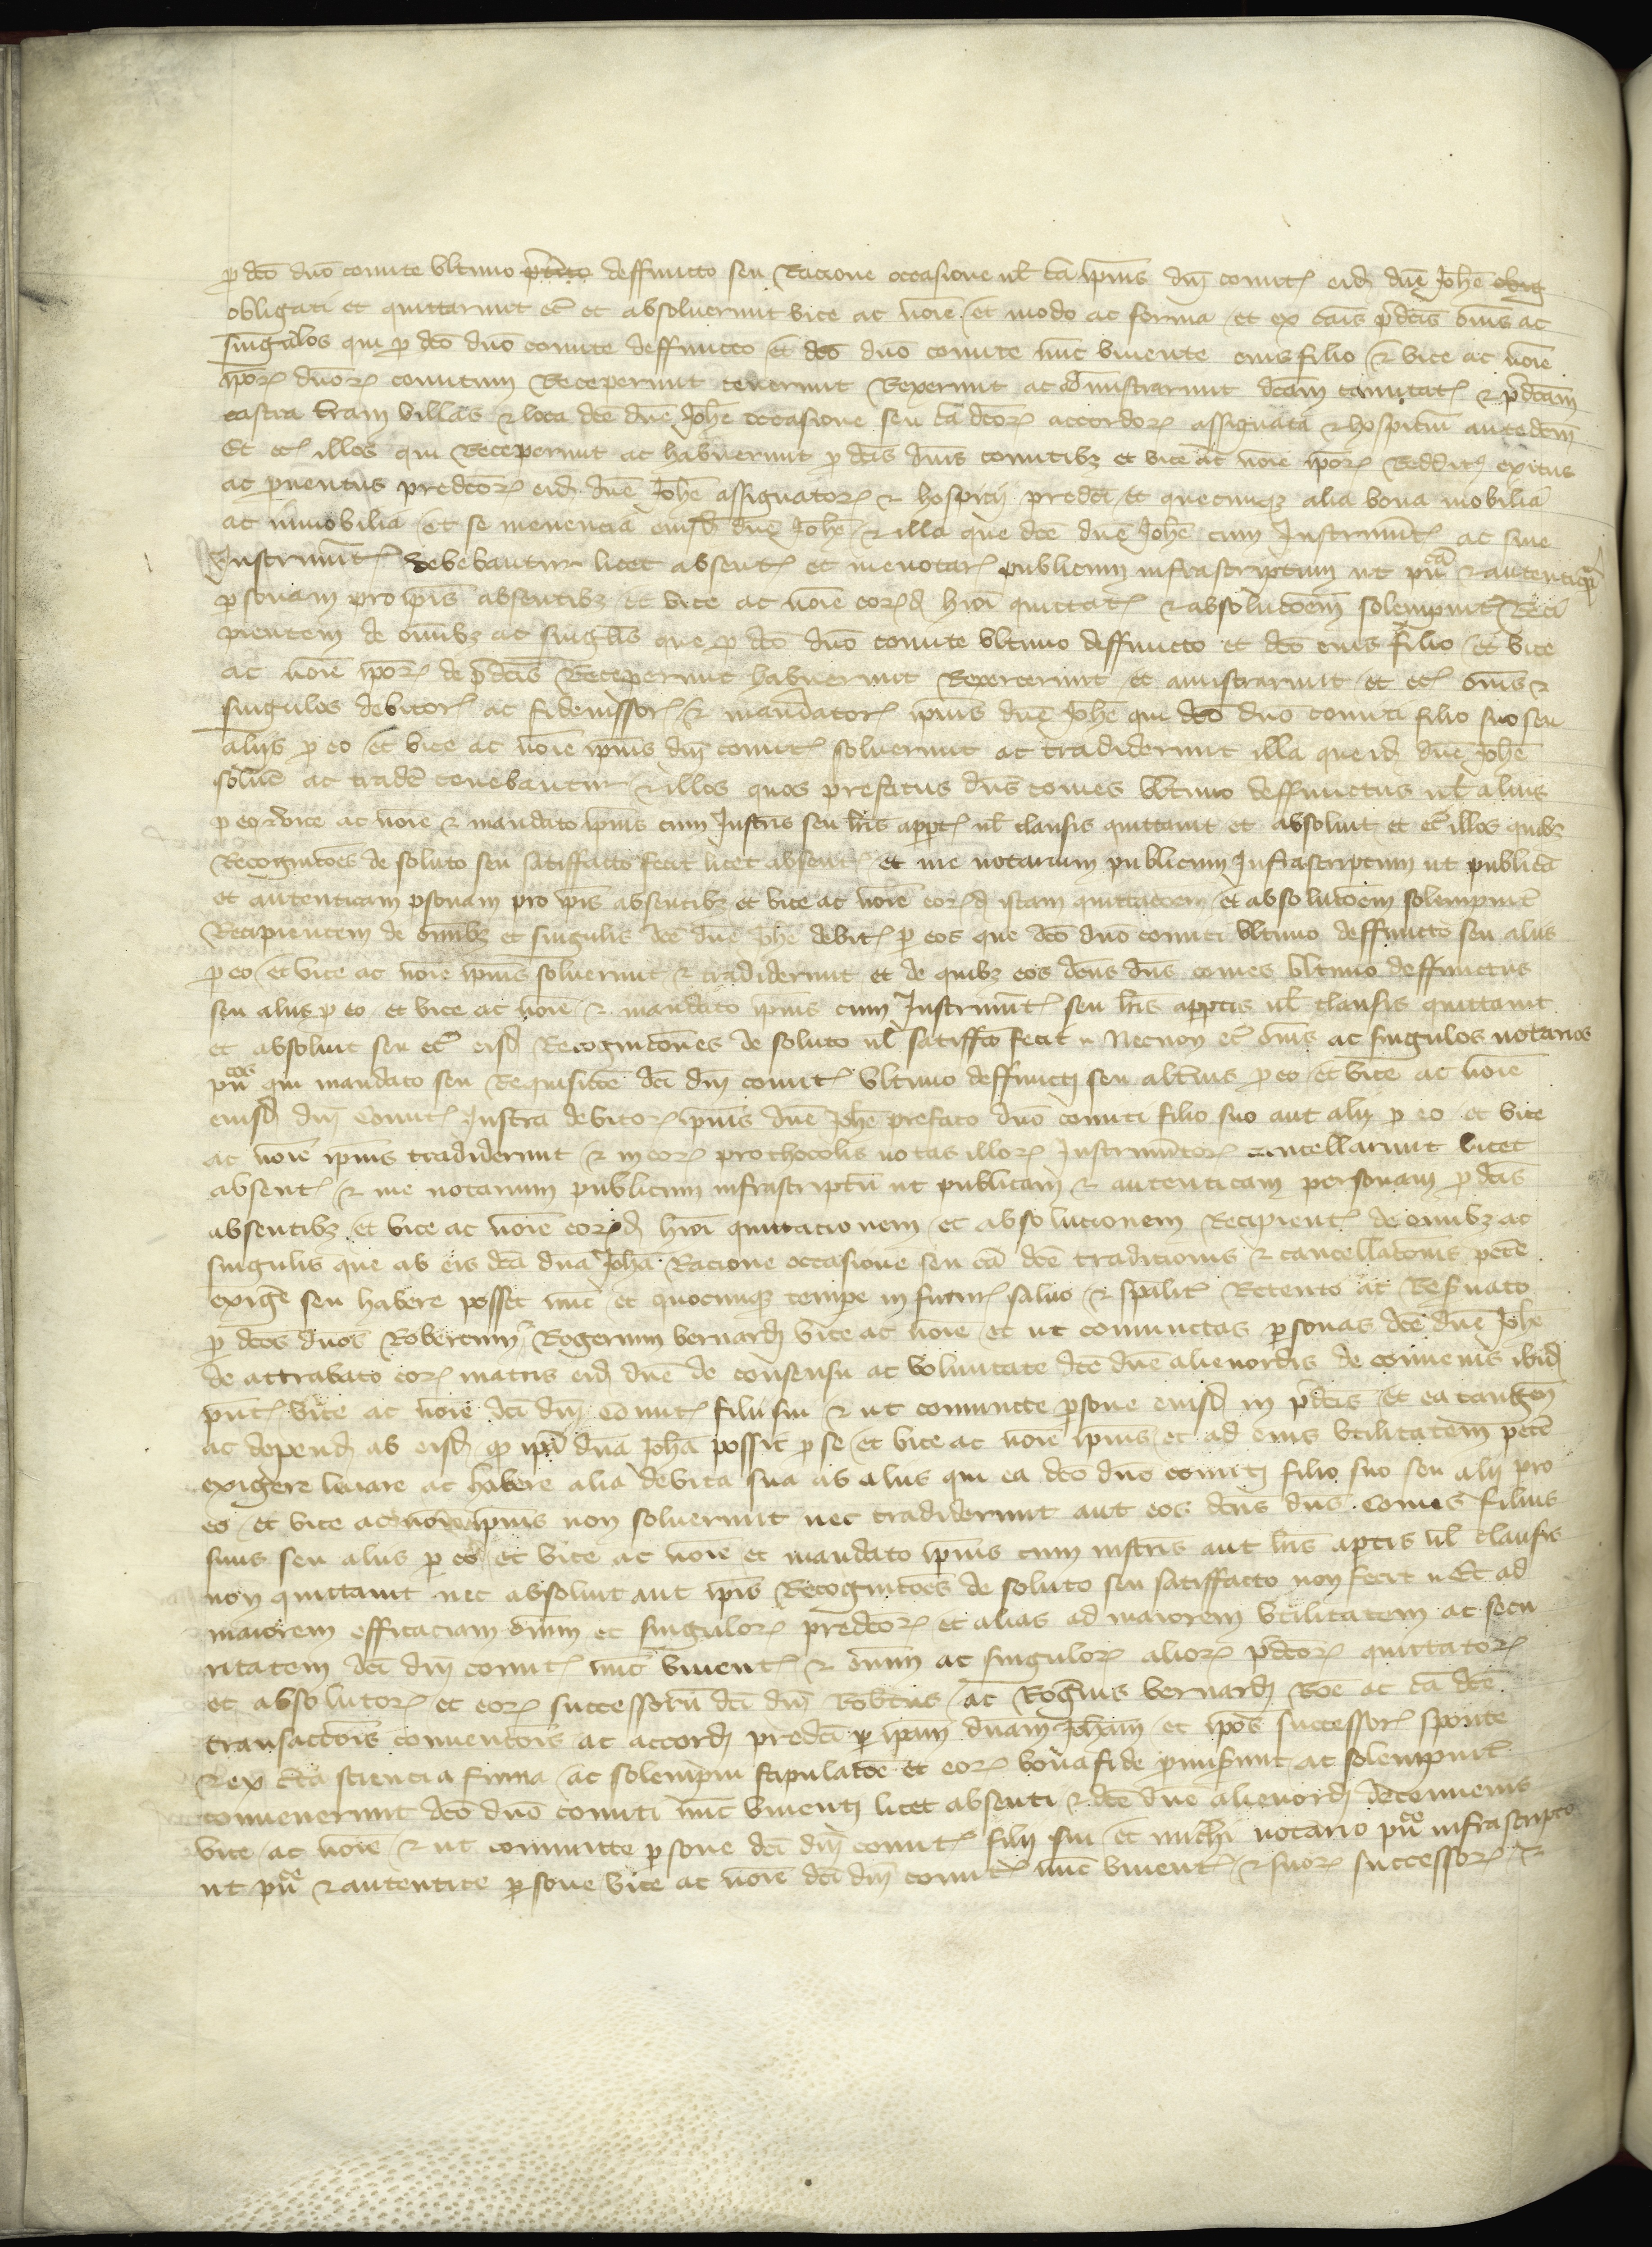 p dco duo comite vltimo p̄dicto deffuncto seu Racione occasione ul ca ipius dnj comit eid dne Johe oblig
obligati et quittarunt ec et absoluerunt vice ac noie et modo ac forma et ex cais pdcis oms ac
singulos qui p dco duo comite deffuncto et dco duo comite nuc viuente eius filio et vice ac noie
ipor duor comitum Receperunt tenerunt Rexerunt ac administrarunt dcam comitat & pdcam
castra terram villas & loca dce dne Johe occasione seu ca dcor accordor assignata & hospiciu antedcm
Et ec illos qui Receperunt ac habuerunt p dcis duis comitibz et vice ac noie ipor Reddit exitus
ac puentus predcor eid dne Johe assignator & hospicij predci et quecunqz alia bona mobilia
ac inmobilia et se mouencia eiusd dne Johe & illa que dce dne Johe cum Instrument ac sine
Instrument debebantur licet absent et me notar publicum infrascriptum ut pu cā & autentiqā
psonam pro ipis absentibz et vice ac noie eord hmoi quittat & absolucoem solempnit Reci
pientem de omibz ac singlis que p dco duo comite vltimo deffuncto et dco eius filio et vice
ac noie ipor de pdcis Receperunt habuerunt Rexerunt et amistrarunt et ec oms &
singulos debitor ac fideiussor & mandator ipius dne Johe qui dco duo comiti filio suo seu
alijs p eo et vice ac noie ipius dnj comit soluerunt ac tradiderunt illa que id dne Johe
soluē ac tradē tenebantur & illos quos prefatus dus comes vltimo deffunctus ul alius
p eo & vice ac noie & mandato ipius cum Instris seu lris appt ul clausis quittauit et absoluit et ec illos quibz
Recognicoes de soluto seu satiffacto fecit licet absent et me notarium publicum Infrascriptum ut publica
et autenticam psonam pro ipis absentibz et vice ac noie eord istam quittacoem et absolucoem solempnit
Recipientem de omibz et singulis dce dne Johe debit p eos que dco duo comiti vltimo deffuncto seu alijs
p eo et vice ac noie ipius soluerunt & tradiderunt et de quibz eos dcus dus comes vltimo deffunctus
seu alius p eo et vice ac noie & mandato ipius cum Instrument seu lris appertis ul clausis quittauit
et absoluit seu ec eisd Recognicoes de soluto ul satiffco fecit Necnon ec oms ac singulos notarios
pu cos qui mandato seu Requisicoe dci dnj comit vltimo deffuncti seu alterius p eo et vice ac noie
eiusd dnj Comit Instra debitor ipius dne Johe prefato duo comiti filio suo aut alij p eo et vice
ac noie ipius tradiderunt & in eor prothocolis notas illor Instrumentor cancellarunt licet
absent & me notarium publicum infrascriptu ut publicam & autenticam personam p dcis
absentibz et vice ac noie eord hmoi quittacionem et absolucionem Recipient de omibz ac
singulis que ab eis dca dna Joha Racione occasione seu ca dce tradicionis & cancellacois petē
exigē seu habere posset nuc et quocunqz tempe in futur saluo & spalit Retento ac Resuato
p dcos duos Robertum Rogerium bernardj vice ac noie et ut coniunctas psonas dce dne Johe
de attrabato eor matris eid dne de consensu ac voluntate dce dne alienordis de conuenis ibid
pnt vice ac noie dci dnj comit filij sui & ut coniuncte psone eiusd in pdcis et ea tangen
ac depend ab eisd qp ipa dna Joha possit p se et vice ac noie ipius et ad eius vtilitatem petē
exigere leuare ac habere alia debita sua ab alijs qui ea dco duo comitj filio suo seu alij pro
eo et vice ac noie ipius non soluerunt nec tradiderunt aut eos dcus dus Comes filius
suus seu alius p eo et vice ac noie et mandato ipius cum instris aut lris aptis ul clausis
non quittauit nec absoluit aut ipis Recognicoes de soluto seu satiffacto non fecit Et ad
maiorem efficaciam oium et singulor predcor et alias ad maiorem vtilitatem ac secu
ritatem dci dnj comit nuc viuent & oium ac singulor alior pdcor quittator
et absolutor et eor successoru dci dnj Robtus ac Rogius bernardj Roe ac ca dce
transaccois conuencois ac accordj predci p ipam dnam Joham et ipos successor sponte
& ex cta sciencia firma ac solempni stipulacoe et eor bona fide pmiserunt ac solempnit
conuenerunt dco duo comiti nuc viuenti licet absenti & dce dne alienord de conuenis
vice ac noie & ut coniuncte psone dci dnj comit filij sui et michi notario pu co infrascripto
ut pu ce & autentice psone vice ac noie dci dnj comit nuc viuent & suor successor &